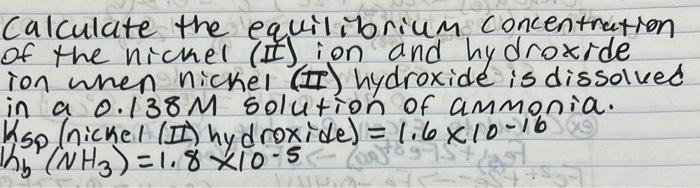 Calculate the equilibrium concentration
of the nickel (II) ion and hydroxide
ion when nickel (II) hydroxide is dissolved
in a 0.138M solution of ammonia.
Ksp (nickel (II) hydroxide) = 1.6 x 10-16
Kb (NH3) = 1.8 x 10-5